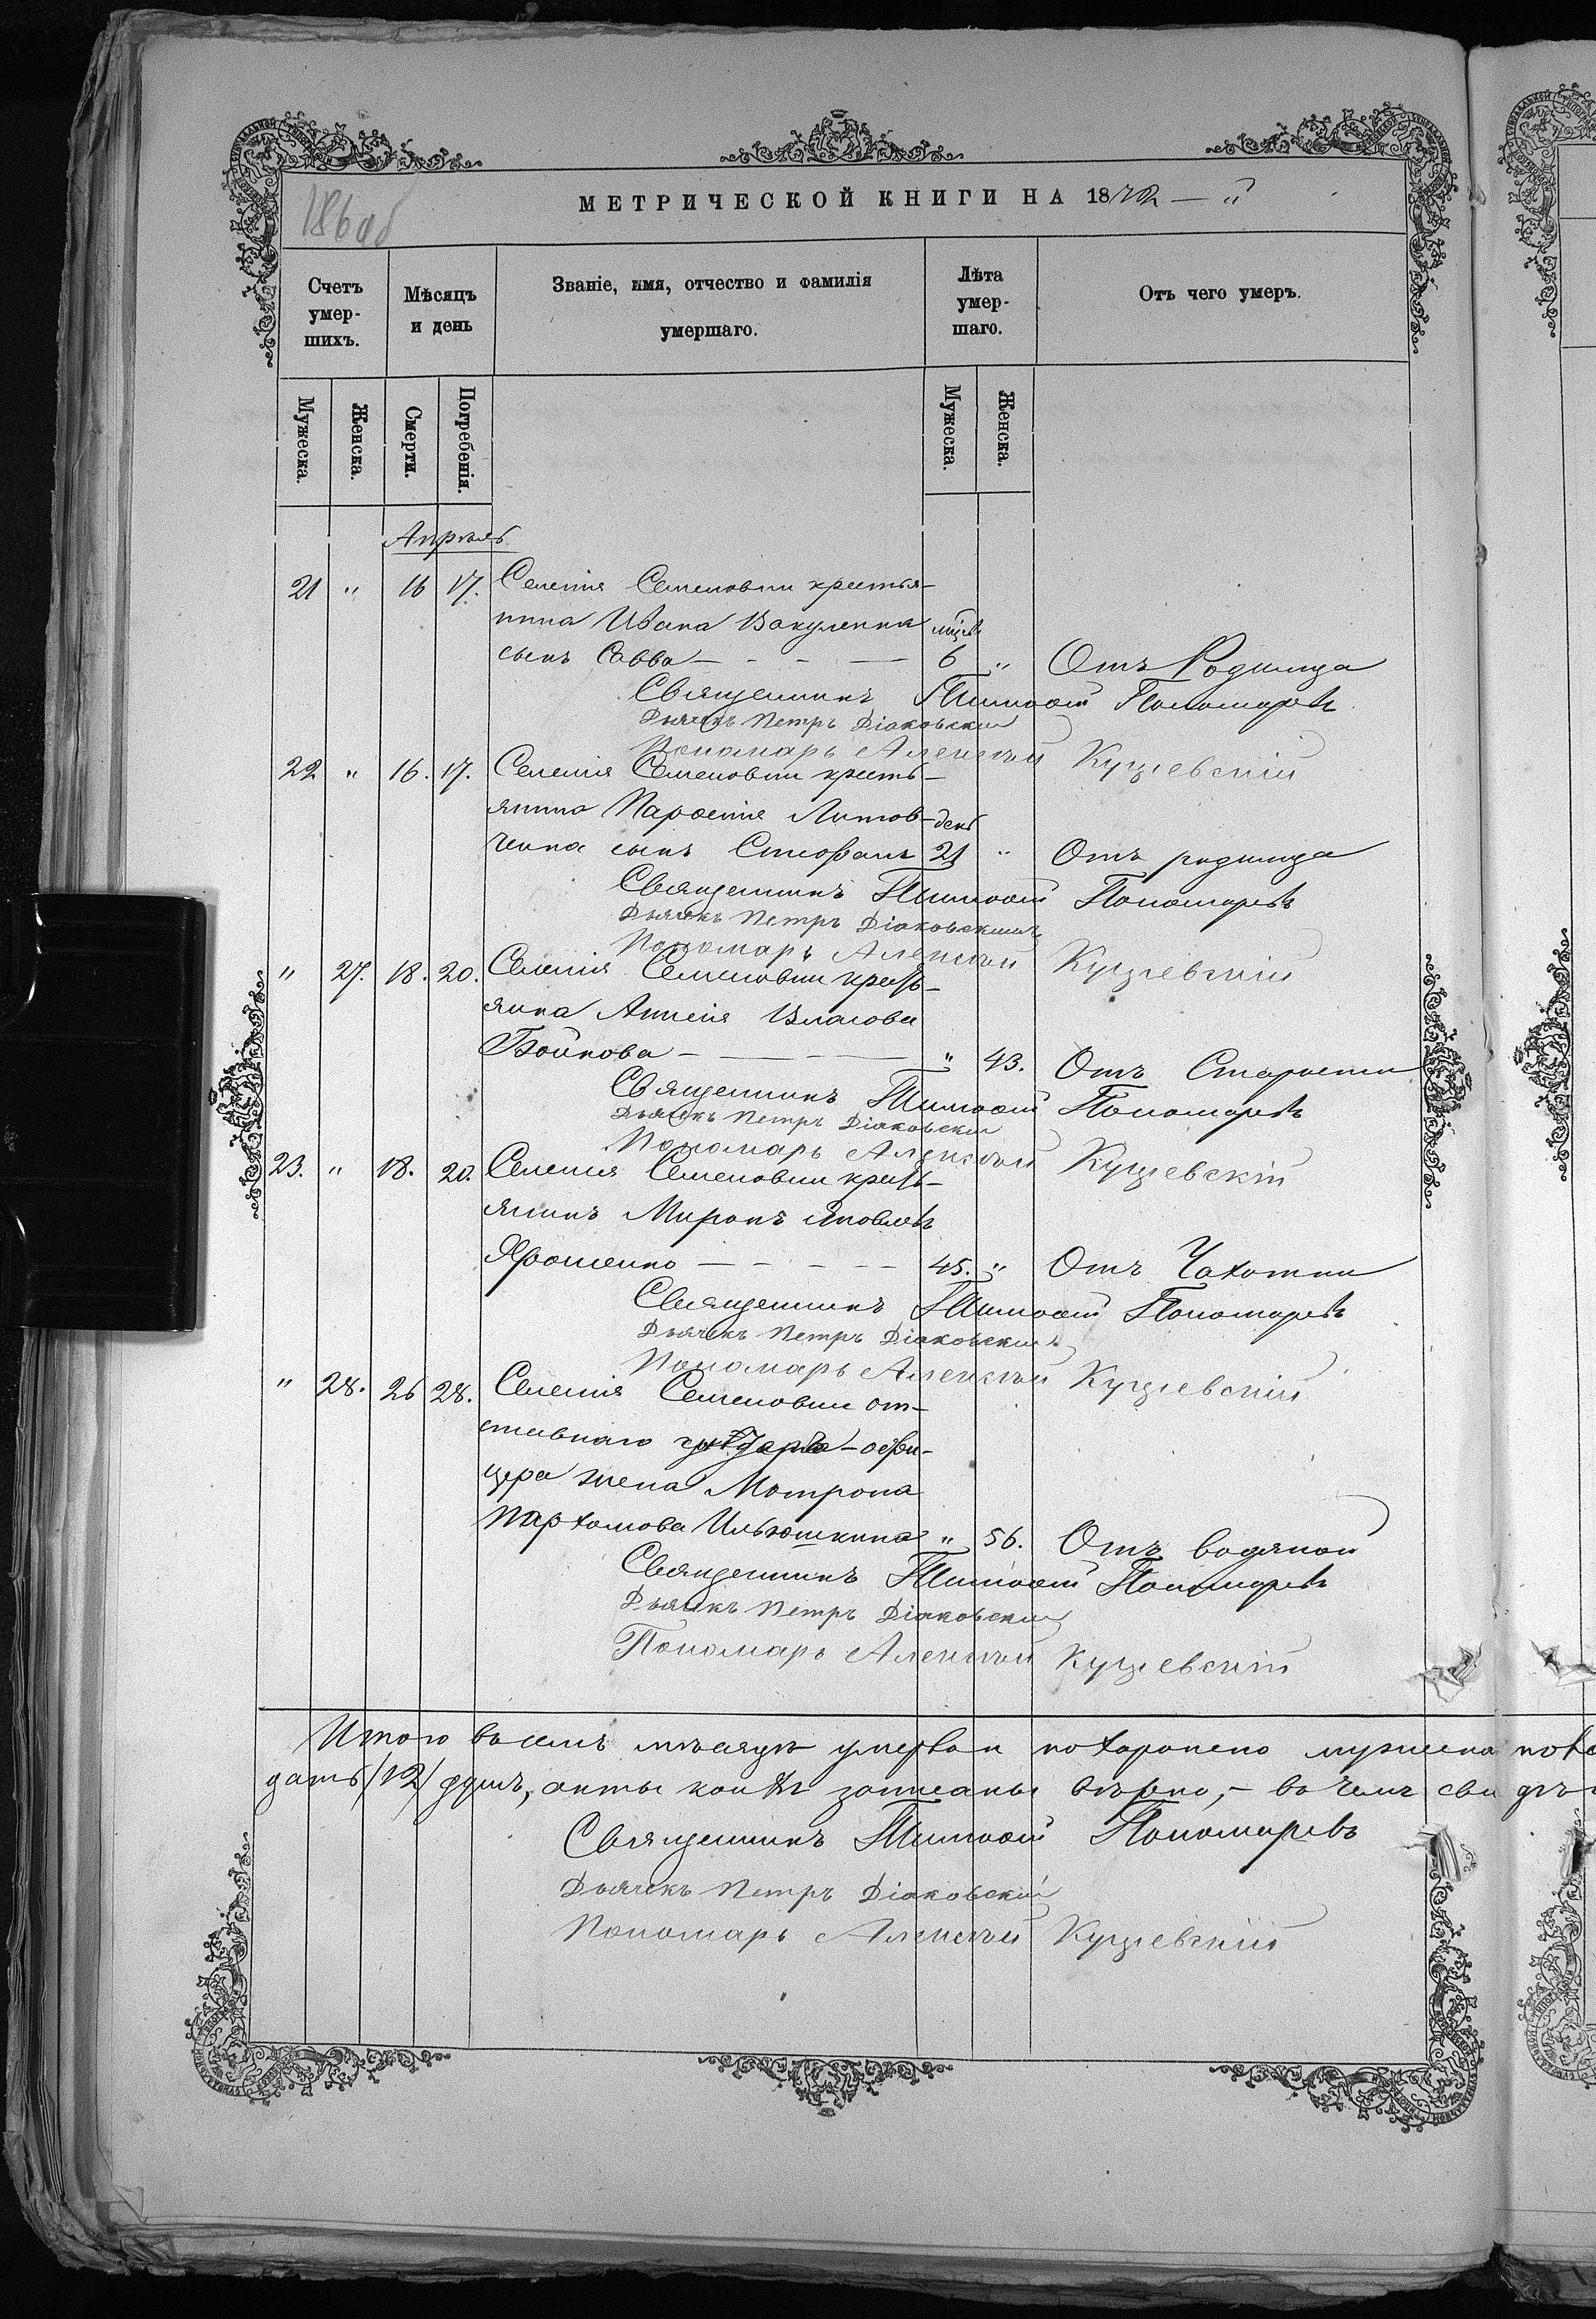 186 об
МЕТРИЧЕСКОЙ КНИГИ НА 1872 — й
Счетъ умер- шихъ.
Мѣсяцъ и день
Званіе, имя, отчество и фамилія умершаго.
Лѣта умер- шаго.
Отъ чего умеръ.
Мужеска. Женска. Смерти. Погребенія. Мужеска. Женска.
Апрѣль
21 " 16 17. Селенія Семеновки крестья-
нина Ивана Вакуленка мѣс.
сынъ Савва — 6 " Отъ Родимца
Священникъ Тимоѳей Пономаревъ
Дьячекъ Петръ Діаковскій
Пономарь Алексѣй Кущевскій
22 " 16. 17. Селенія Семеновки кресть-
янина Парѳенія Литов- ден
ченка сынъ Стефанъ 21 " Отъ родимца
Священникъ Тимоѳей Пономаревъ
Дьячекъ Петръ Діаковскій
Пономарь Алексѣй Кущевскій
" 27. 18. 20. Селенія Семеновки кресть-
янка Анисія Власова
Бойкова — " 43. Отъ Старости
Священникъ Тимоѳей Пономаревъ
Дьячекъ Петръ Діаковскій
Пономарь Алексѣй Кущевскій
23. " 18. 20. Селенія Семеновки кресть-
янинъ Миронъ Яковлевъ
Ярошенко — 45. " Отъ Чахотки
Священникъ Тимоѳей Пономаревъ
Дьячекъ Петръ Діаковскій
Пономарь Алексѣй Кущевскій
" 28. 26 28. Селенія Семеновки от-
ставнаго унтеръ-офи-
цера жена Мотрона
Пархомова Ильюшкина " 56. Отъ водяной
Священникъ Тимоѳей Пономаревъ
Дьячекъ Петръ Діаковскій
Пономарь Алексѣй Кущевскій
Итого въ семъ мѣсяцѣ умерло и похоронено мужеска
дать /12/ душъ, акты коихъ записаны вѣрно, – въ чемъ свидѣ
Священникъ Тимоѳей Пономаревъ
Дьячекъ Петръ Діаковскій
Пономарь Алексѣй Кущевскій